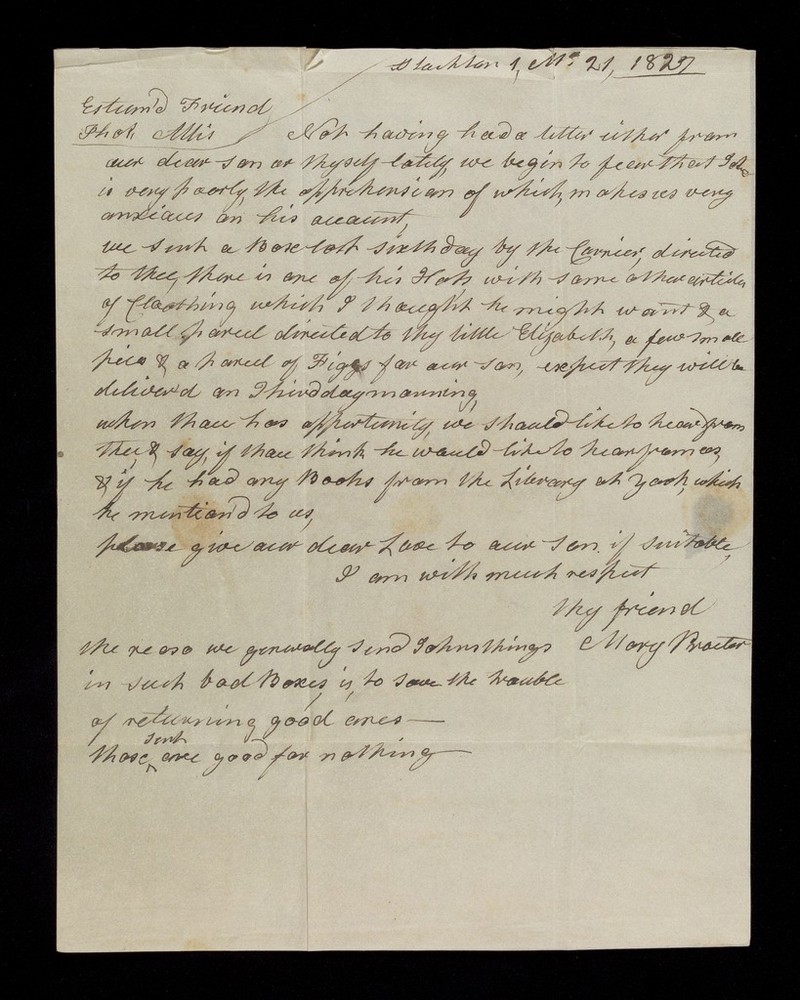 Stockton 1, Mo 21, 1827
Estum'd Friend
Thos Allis Not having had a letter either from
our dear son or thyself lately, we begin to fear that John
is very poorly, the apprehension of which, makes us very
anxious on his account,
we sent a Box last sixth day by the Carrier, directed
to thee, there is one of his Hats with some other articles
of Cloathing which I thought he might want & a
small parcel directed to thy little Elizabeth, a few small
pies & a parcel of Figgs for our son, expect they will be
deliver'd on Third day morning,
when thou has opportunity, we should like to hear from
thee, & say, if thou think he would like to hear from us,
& if he had any Books from the Library at York, which
he mention'd to us,
please give our dear Love to our son, if suitable,
I am with much respect
thy friend
Mary Procter
the reaso we generally send Johns things
in such bad Boxes, is, to save the trouble
of returning good ones—
those ^sent are good for nothing—